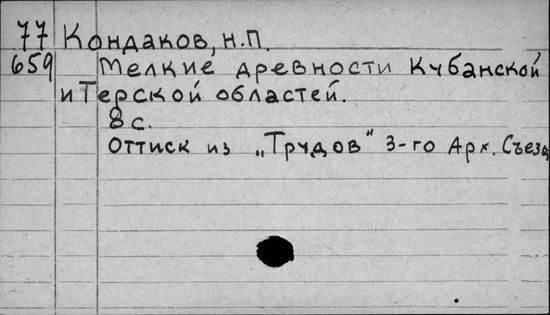 77 Кондаков, Н.П.
659 Мелкие древности Кубанской
и Терской областей.
8 с.
Оттиск из „Трудов" 3-го Арх. Съезд